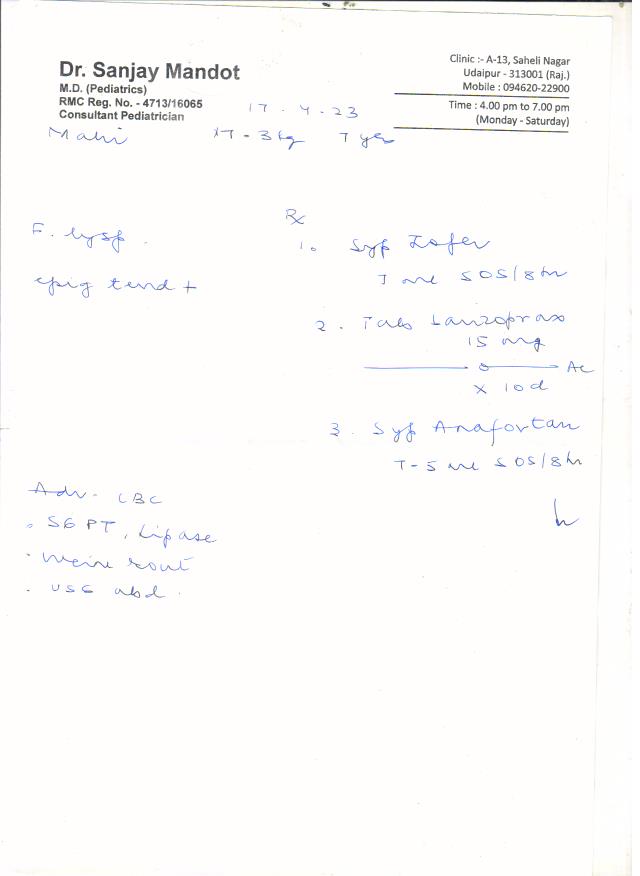 Dr. Sanjay Mandot
M.D. (Pediatrics)
RMC Reg. No. - 4713/16065
Consultant Pediatrician
Clinic :- A-13, Saheli Nagar
Udaipur - 313001 (Raj.)
Mobile : 094620-22900
Time : 4.00 pm to 7.00 pm
(Monday - Saturday)
17 . 4 . 23
Mahi
7 yr
Rx
F. dysp.
epig tend +
1. Syp Zofer
ml SOS/8 hr
2. Tab Lanzoprax
15 mg
AC
x 10 d
3. Syp Anafortan
5 ml SOS/8 hr
Adv. CBC
. SGPT, Lipase
. rout
. USG abd.